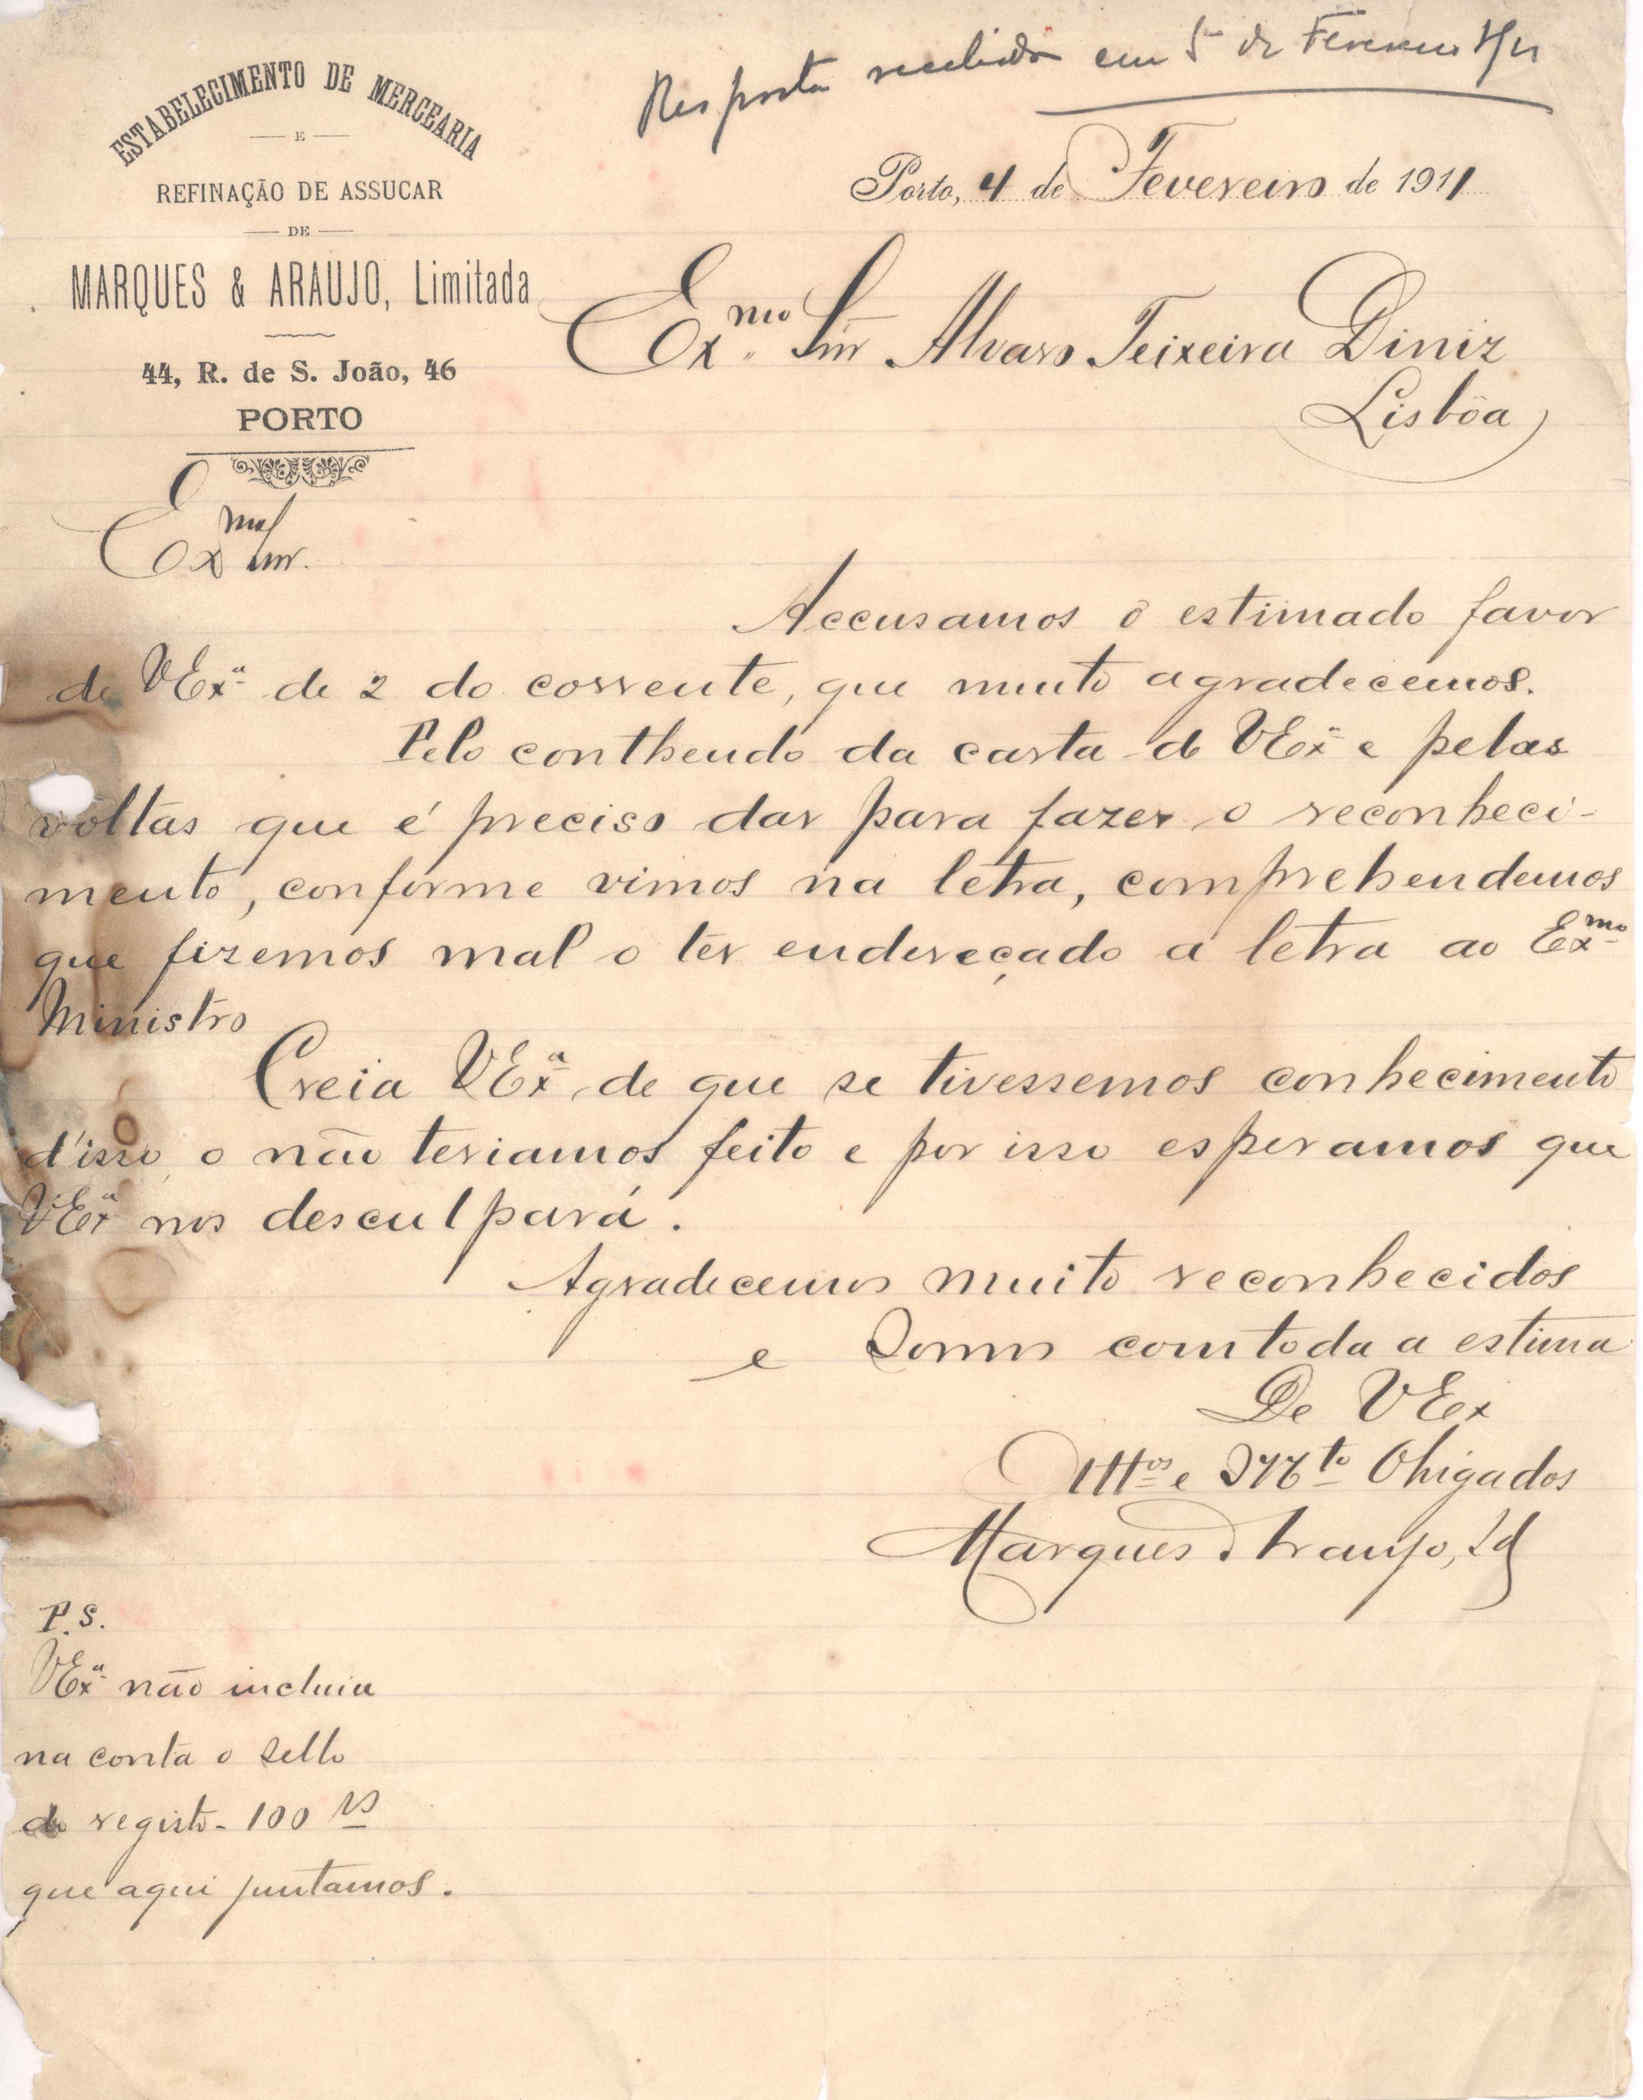 Resposta recebida em 5 de Fevereiro 1911
ESTABELECIMENTO DE MERCEARIA
E
REFINAÇÃO DE ASSUCAR
DE
MARQUES & ARAUJO, Limitada
44, R. de S. João, 46
PORTO
Porto, 4 de Fevereiro de 1911
Exmo Snr Alvaro Teixeira Diniz
Lisbôa
Exmo Snr.
Accusamos o estimado favor
de VExª de 2 do corrente, que muito agradecemos.
Pelo contheudo da carta de VExª e pelas
vóltas que é preciso dar para fazer o reconheci-
mento, conforme vimos na letra, comprehendemos
que fizemos mal o ter endereçado a letra ao Exmo
Ministro
Creia VExª de que se tivessemos conhecimento
d'isso o não teriamos feito e por isso esperamos que
VExª nos desculpará.
Agradecemos muito reconhecidos
e Somos com toda a estima
De VEx
Attos e Mto Obigados
Marques & Araujo, Ld
P.S.
VExª não incluia
na conta o sello
do registo - 100 rs
que aqui juntamos.